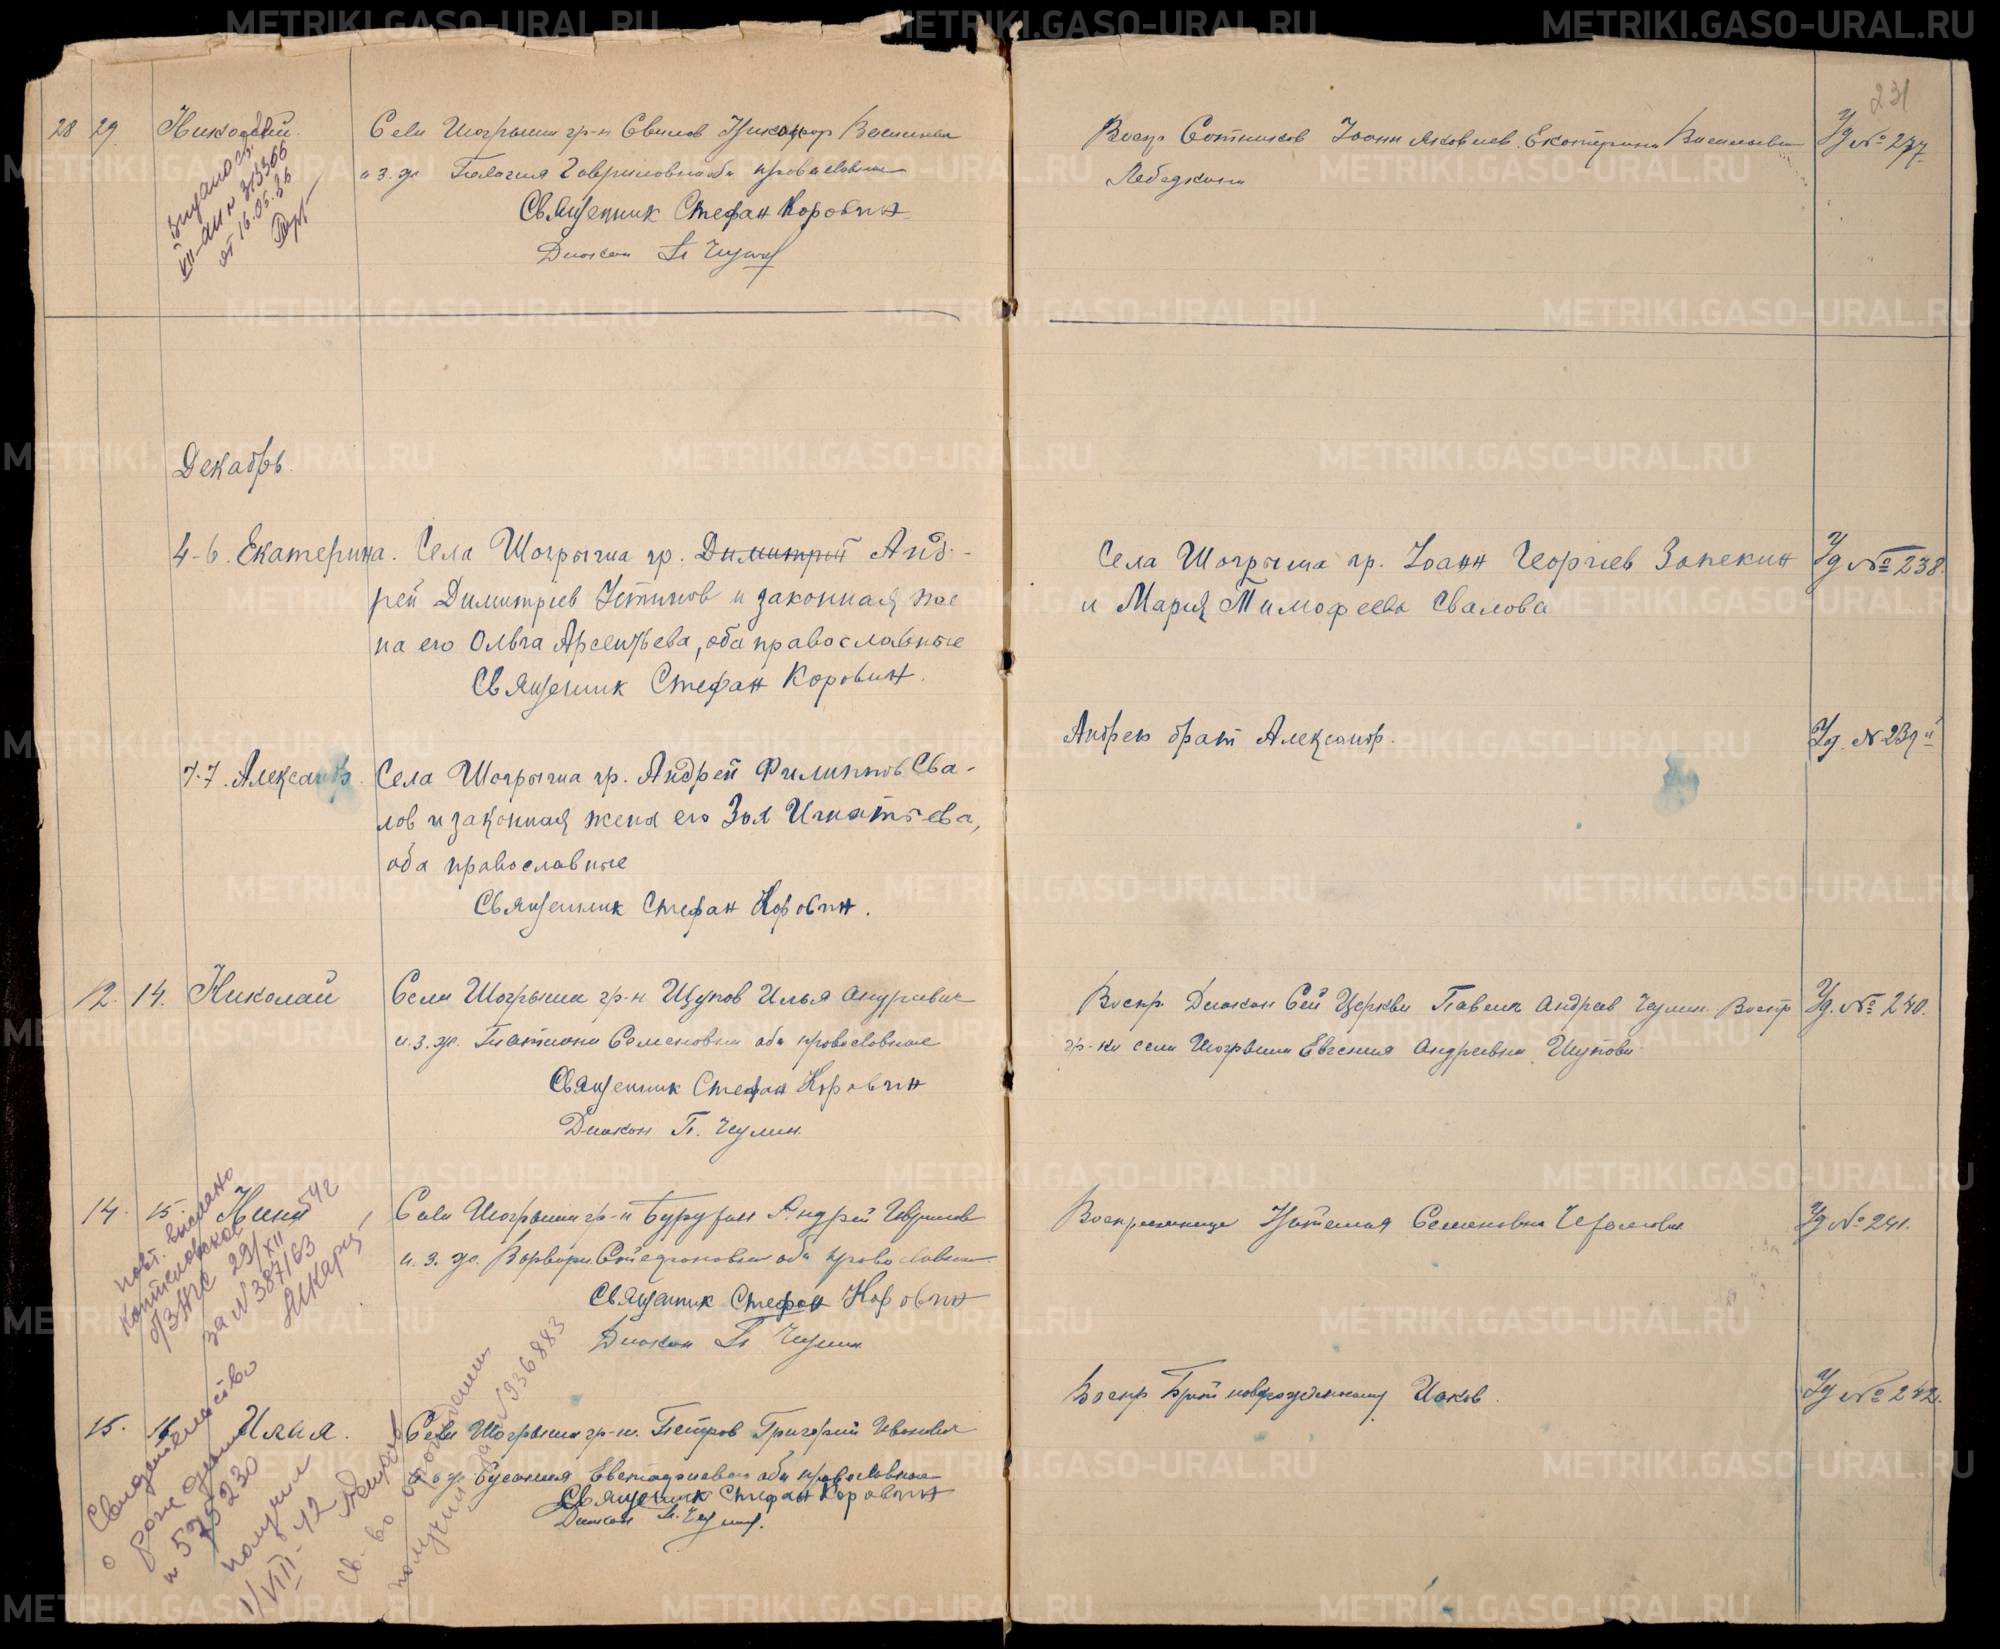 231
28 29 Николай.
Села Шогрыша гр-н Свалов Никанор Васильев
и з. ж. Пелагия Гавриловна оба православные
Священник Стефан Коровин
Диакон П. Чулин
Выдано св.
VII-АИ N
от 16.06.86
Воспр Сотников Иоанн Яковлев. Екатерина Васильевна
Лебедкина
Уд № 237
Декабрь.
4-6. Екатерина. Села Шогрыша гр. Димитрий Анд-
рей Димитриев Устинов и законная же
на его Ольга Арсентьева, оба православные
Священник Стефан Коровин.
Села Шогрыша гр. Иоанн Георгиев Запекин
и Мария Тимофеева Свалова
Уд № 238.
7-7. Александр. Села Шогрыша гр. Андрей Филиппов Сва-
лов и законная жена его Зоя Игнатьева,
оба православные
Священник Стефан Коровин.
Андрею брат Александр.
Уд. № 239
12. 14. Николай Села Шогрыша гр-н Щупов Илья Андриевич
и. з. ж. Татиана Семеновна оба православные
Священник Стефан Коровин
Диакон П. Чулин.
Воспр. Диакон Сей Церкви Павел Андреев Чулин. Воспр
гр-ка села Шогрыша Евгения Андреевна Щупова
Уд. № 240.
14. 15. Нина
Села Шогрыша гр-н Андрей Гаврилов
и. з. ж. Варвара Стефановна оба православные.
Священник Стефан Коровин
Диакон П. Чулин
повт. выслано
ЗАГС 29/XII 54г
за N 387/63
Воспреемница Семеновна
Уд № 241.
15. 16. Илия.
Села Шогрыша гр-н. Петров Григорий Иванович
оба православные
Священник Стефан Коровин
Диакон П. Чулин.
Свидетельство
о рождении
N 575230
получил
1/VIII-42 Петров
Св-во о рождении
получил N 936883
Воспр Брат новорожденному Иаков.
Уд № 242.
METRIKI.GASO-URAL.RU